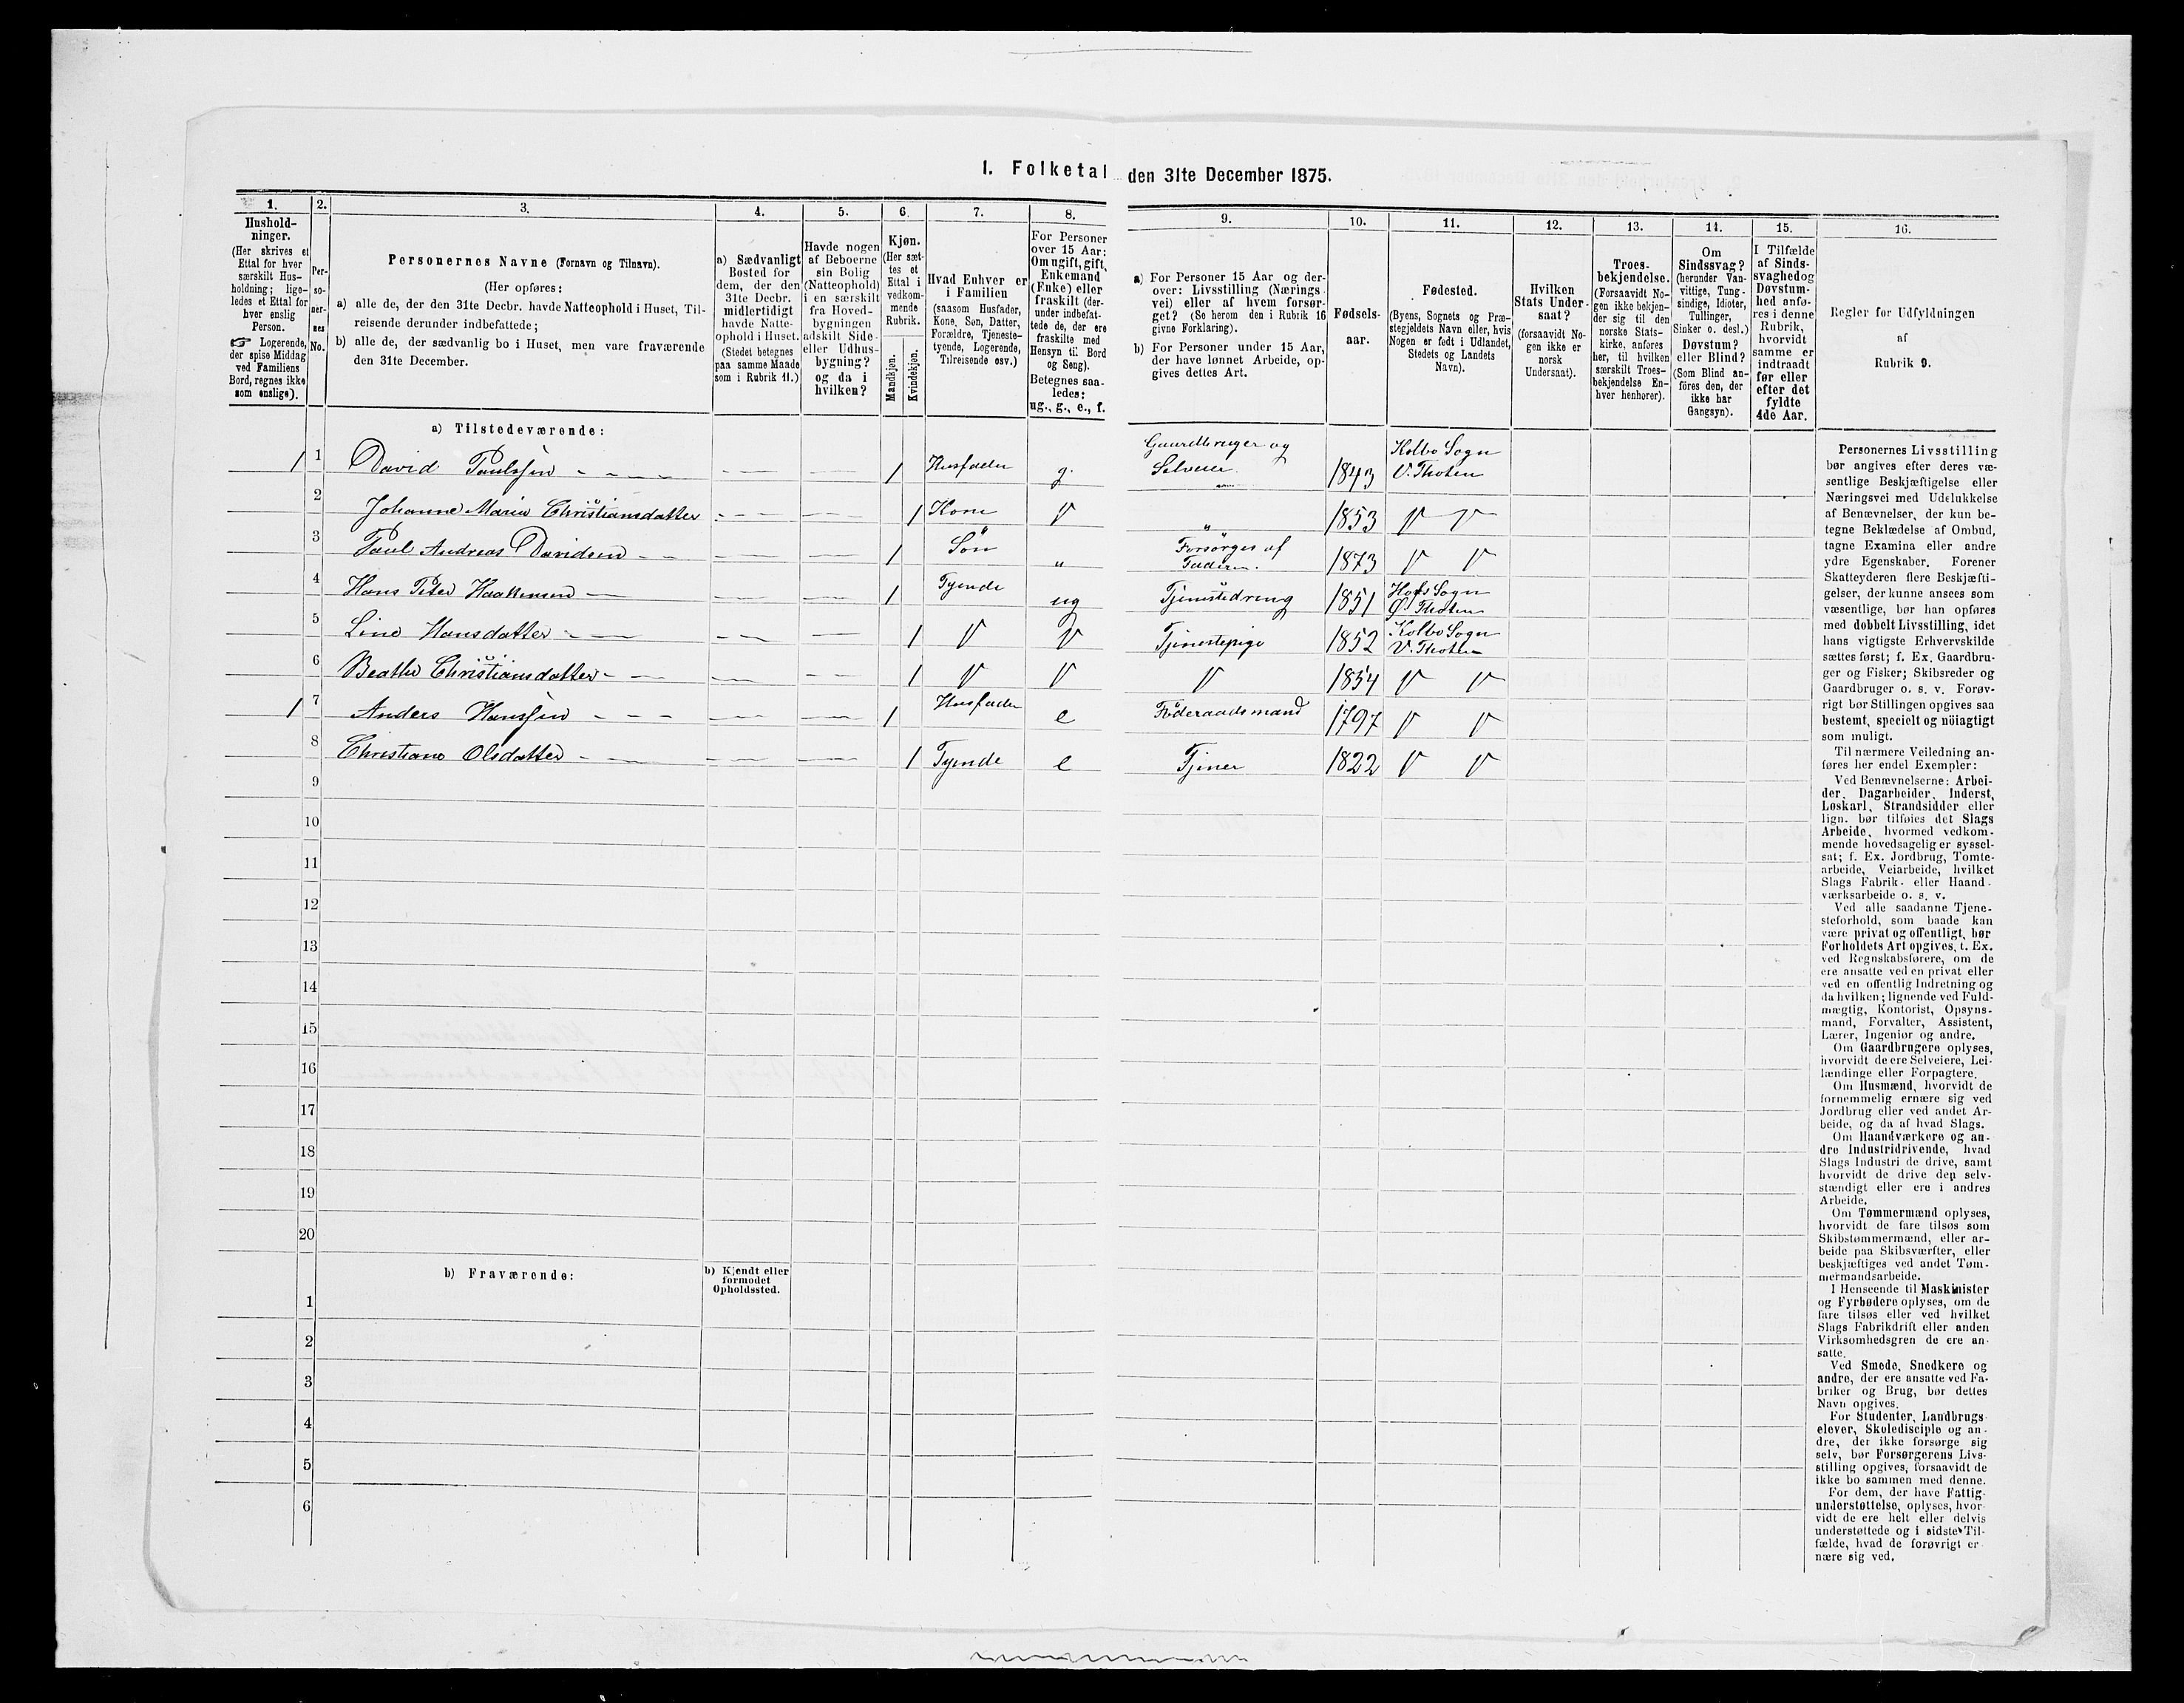 I. Folketal den 31te December 1875.
1.
Hushold-
ninger.
(Her skrives et
Ettal for hver
særskilt Hus-
holdning; lige-
ledes et Ettal for
hver enslig
Person.
☞ Logerende,
der spise Middag
ved Familiens
Bord, regnes ikke
som enslige).
2.
Per-
so-
ner-
nes
No.
3.
Personernes Navne (Fornavn og Tilnavn).
(Her opføres:
a) alle de, der den 31te Decbr. havde Natteophold i Huset, Til-
reisende derunder indbefattede;
b) alle de, der sædvanlig bo i Huset, men vare fraværende
den 31te December.
4.
a) Sædvanligt
Bosted for
dem, der den
31te Decbr.
midlertidigt
havde Natte-
ophold i Huset.
(Stedet betegnes
paa samme Maade
som i Rubrik 11.)
5.
Havde nogen
af Beboerne
sin Bolig
(Natteophold)
i en særskilt
fra Hoved-
bygningen
adskilt Side-
eller Udhus-
bygning?
og da i
hvilken?
6.
Kjøn.
(Her sæt-
tes et
Ettal i
vedkom-
mende
Rubrik.
Mandkjøn.
Kvindekjøn.
7.
Hvad Enhver er
i Familien
(saasom Husfader,
Kone, Søn, Datter,
Forældre, Tjeneste-
tyende, Logerende,
Tilreisende osv.)
8.
For Personer
over 15 Aar:
Om ugift, gift,
Enkemand
(Enke) eller
fraskilt (der-
under indbefat-
tede de, der ere
fraskilte med
Hensyn til Bord
og Seng).
Betegnes saa-
ledes:
ug., g., e., f.
9.
a) For Personer 15 Aar og der-
over: Livsstilling (Nærings-
vei) eller af hvem forsør-
get? (Se herom den i Rubrik 16
givne Forklaring).
b) For Personer under 15 Aar,
der have lønnet Arbeide, op-
gives dettes Art.
10.
Fødsels-
aar.
11.
Fødested.
(Byens, Sognets og Præ-
stegjeldets Navn eller, hvis
Nogen er født i Udlandet,
Stedets og Landets
Navn).
12.
Hvilken
Stats Under-
saat?
(forsaavidt No-
gen ikke er
norsk
Undersaat).
13.
Troes-
bekjendelse.
(Forsaavidt No-
gen ikke bekjen-
der sig til den
norske Stats-
kirke, anføres
her, til hvilken
særskilt Troes-
bekjendelse En-
hver henhører).
14.
Om
Sindssvag?
(herunder Van-
vittige, Tung-
sindige, Idioter,
Tullinger,
Sinker o. desl.)
Døvstum?
eller Blind?
(Som Blind an-
føres den, der
ikke har
Gangsyn).
15.
I Tilfælde
af Sinds-
svaghed og
Døvstum-
hed anfø-
res i denne
Rubrik,
hvorvidt
samme er
indtraadt
før eller
efter det
fyldte
4de Aar.
16.
Regler for Udfyldningen
af
Rubrik 9.
a) Tilstedeværende:
1 1 David Paulssen - - - - 1 Husfader g. Gaardbruger og Selveier. 1843 Kolbo Sogn V. Thoten
2 Johanne Maria Christiansdatter 1 Kone V " 1853 V V
3 Paul Andreas Davidsen 1 Sön " Forsörges af Faderen. 1873 V V
4 Hans Peter Haakensen 1 Tyende ug Tjenestedreng 1851 Hofs Sogn Ø. Thoten
5 Line Hansdatter 1 V V Tjenestepige 1852 Kolbo Sogn V. Thoten
6 Beathe Christiansdatter 1 V V V 1854 V V
1 7 Anders Hanssen 1 Husfader e Föderaadsmand 1797 V V
8 Christiane Olsdatter 1 Tyende e Tjener 1822 V V
9
10
11
12
13
14
15
16
17
18
19
20
b) Fraværende:
b) Kjendt eller
formodet
Opholdssted.
1
2
3
4
5
6
Personernes Livsstilling
bør angives efter deres væ-
sentlige Beskjæftigelse eller
Næringsvei med Udelukkelse
af Benævnelser, der kun be-
tegne Beklædelse af Ombud,
tagne Examina eller andre
ydre Egenskaber. Forener
Skatteyderen flere Beskjæfti-
gelser, der kunne ansees som
væsentlige, bør han opføres
med dobbelt Livsstilling, idet
hans vigtigste Erhvervskilde
sættes først; f. Ex. Gaardbru-
ger og Fisker; Skibsreder og
Gaardbruger o. s. v. Forøv-
rigt bør Stillingen opgives saa
bestemt, specielt og nöiagtigt
som muligt.
Til nærmere Veiledning an-
føres her endel Exempler:
Ved Benævnelserne: Arbei-
der, Dagarbeider, Inderst,
Løskarl, Strandsidder eller
lign. bør tilføies det Slags
Arbeide, hvormed vedkom-
mende hovedsagelig er syssel-
sat; f. Ex. Jordbrug, Tomte-
arbeide, Veiarbeide, hvilket
Slags Fabrik- eller Haand-
værksarbeide o. s. v.
Ved alle saadanne Tjene-
steforhold, som baade kan
være privat og offentligt, bør
Forholdets Art opgives, t. Ex.
ved Regnskabsførere, om de
ere ansatte ved en privat eller
ved en offentlig Indretning og
da hvilken; lignende ved Fuld-
mægtig, Kontorist, Opsyns-
mand, Forvalter, Assistent,
Lærer, Ingeniør og andre.
Om Gaardbrugere oplyses,
hvorvidt de ere Selveiere, Lei-
lændinge eller Forpagtere.
Om Husmænd, hvorvidt de
fornemmelig ernære sig ved
Jordbrug eller ved andet Ar-
beide, og da af hvad Slags.
Om Haandværkere og an-
dre Industridrivende, hvad
Slags Industri de drive, samt
hvorvidt de drive den selv-
stændigt eller ere i andres
Arbeide.
Om Tømmermænd oplyses,
hvorvidt de fare tilsøs som
Skibstømmermænd, eller ar-
beide paa Skibsværfter, eller
beskjæftiges ved andet Tøm-
mermandsarbeide.
I Henseende til Maskinister
og Fyrbødere oplyses, om de
fare tilsøs eller ved hvilket
Slags Fabrikdrift eller anden
Virksomhedsgren de ere an-
satte.
Ved Smede, Snedkere og
andre, der ere ansatte ved Fa-
briker og Brug, bør dettes
Navn opgives.
For Studenter, Landbrugs-
elever, Skoledisciple og an-
dre, der ikke forsørge sig
selv, bør Forsørgerens Livs-
stilling opgives, forsaavidt de
ikke bo sammen med denne.
For dem, der have Fattig-
understøttelse, oplyses, hvor-
vidt de ere helt eller delvis
understøttede og i sidste Til-
fælde, hvad de forøvrigt er-
nære sig ved.